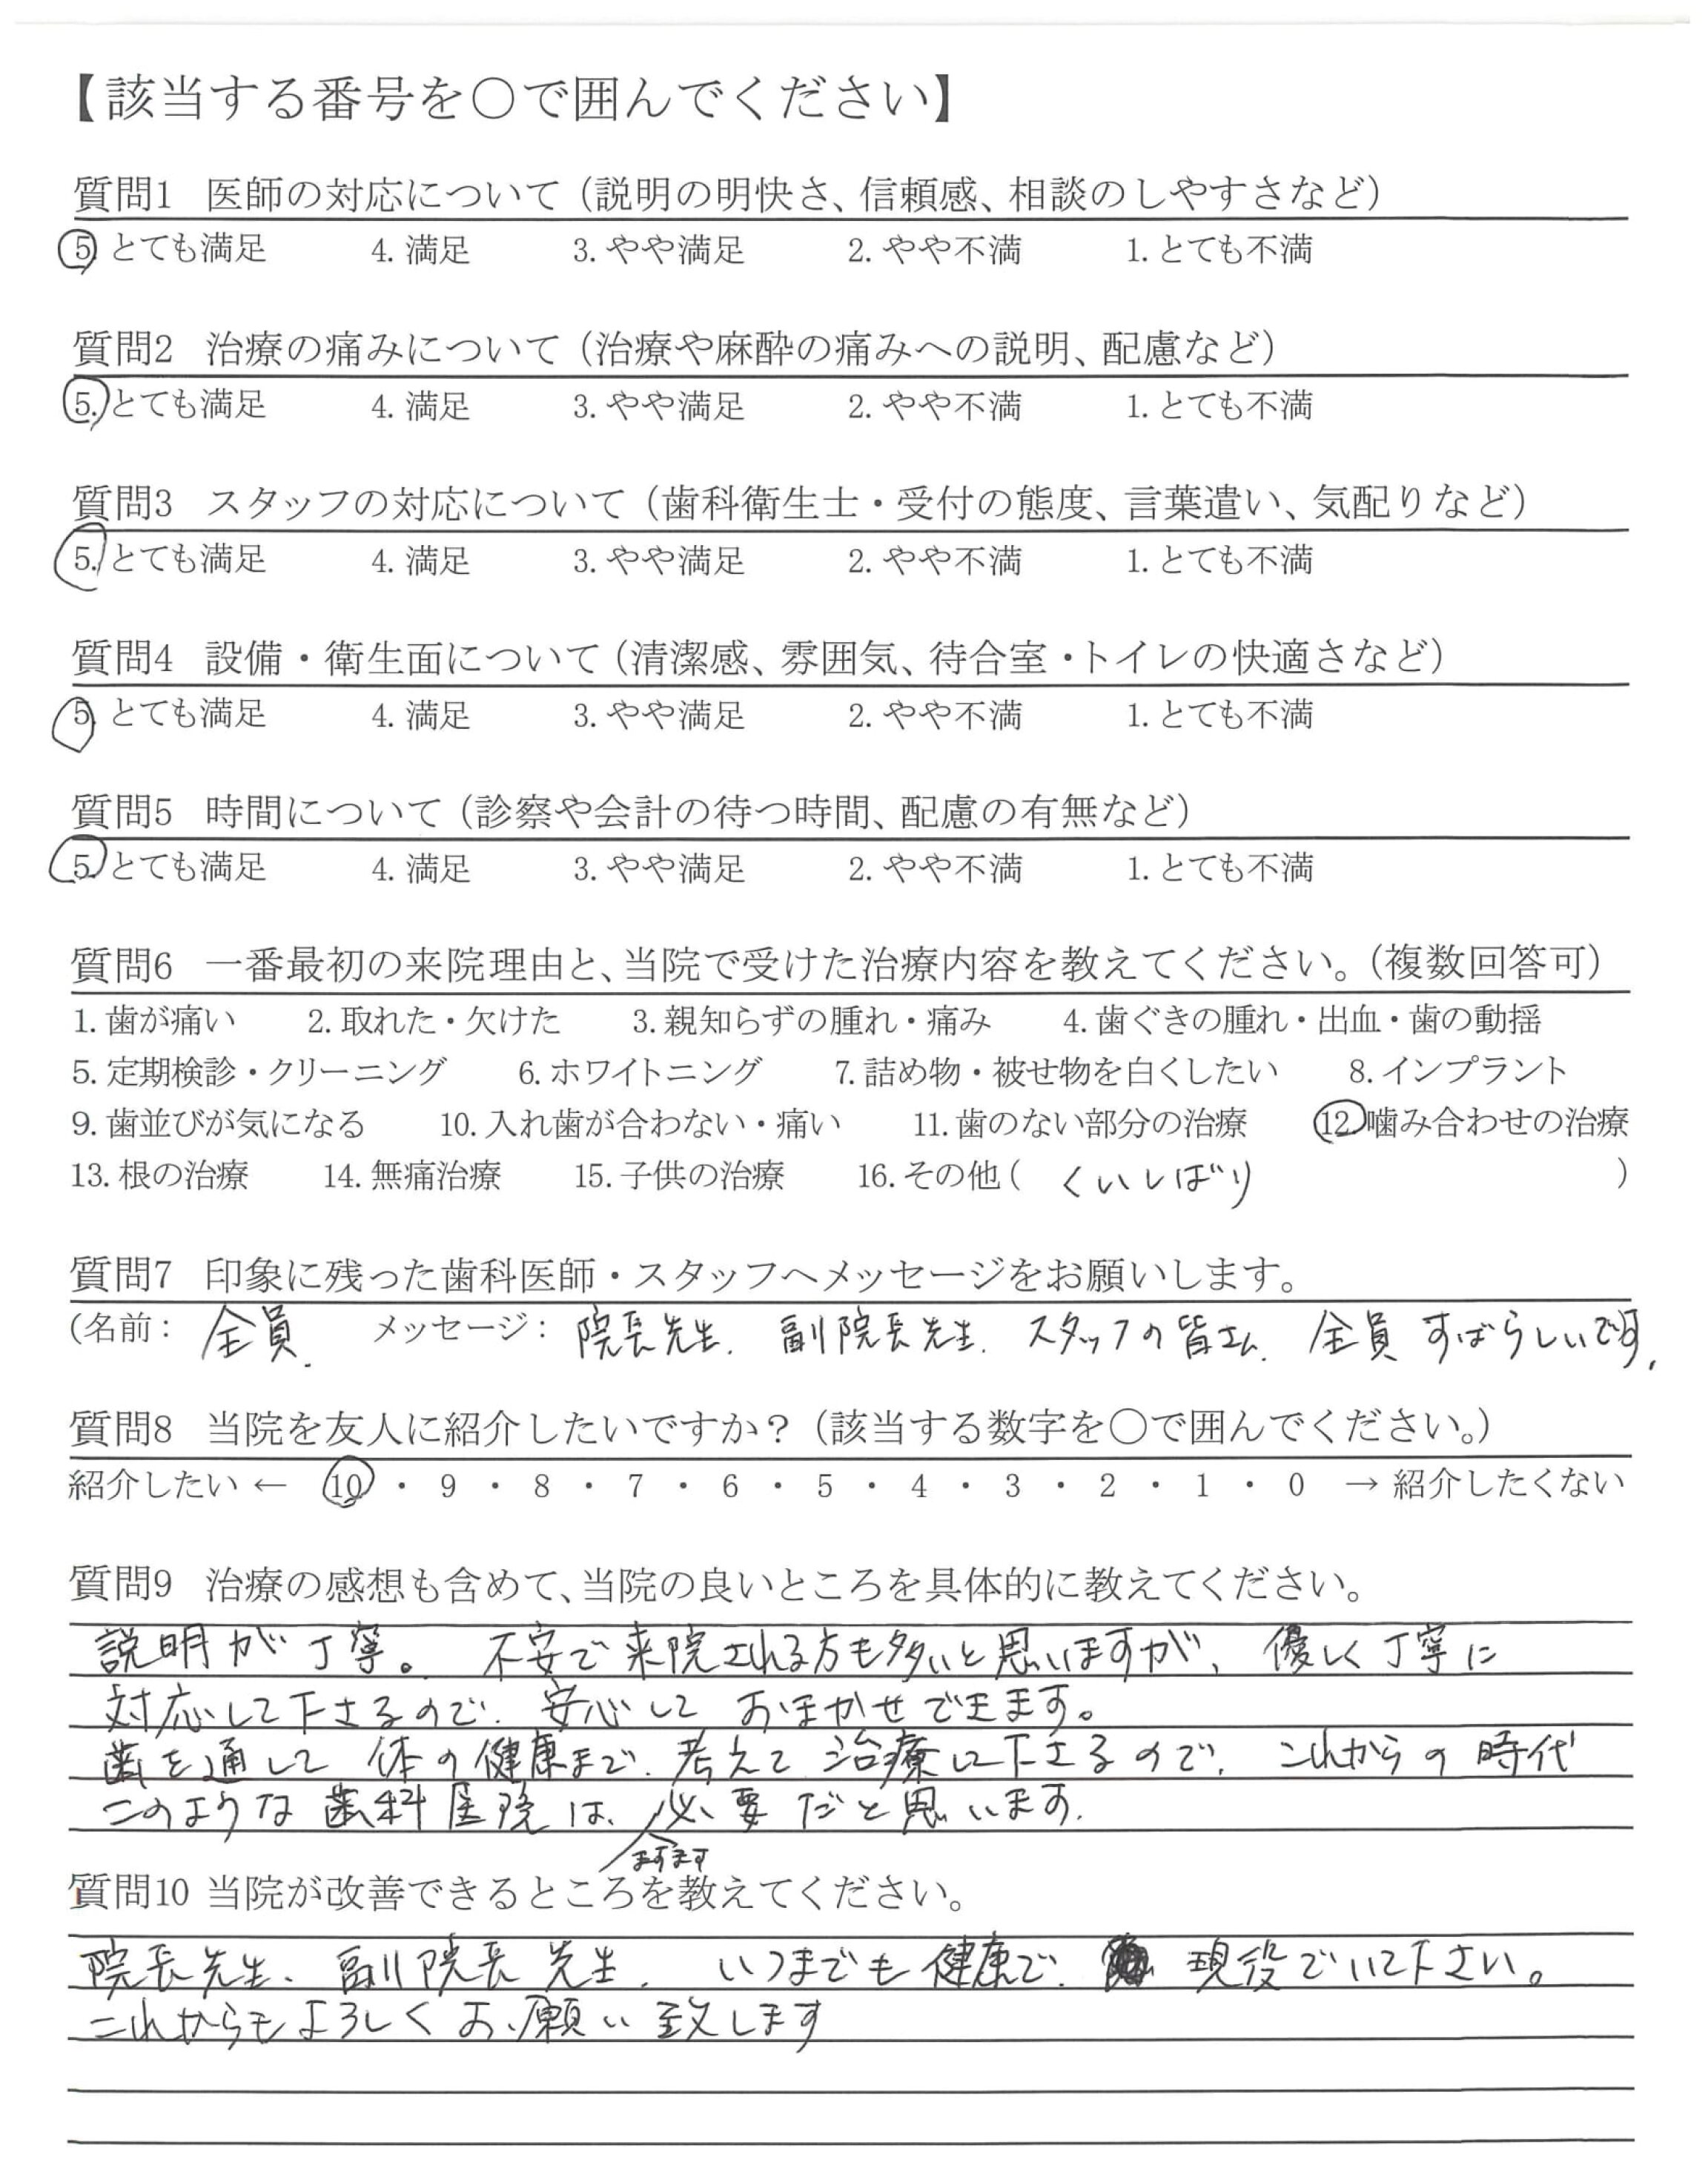 【該当する番号を○で囲んでください】
質問1 医師の対応について（説明の明快さ、信頼感、相談のしやすさなど）
5. とても満足 4. 満足 3. やや満足 2. やや不満 1. とても不満
質問2 治療の痛みについて（治療や麻酔の痛みへの説明、配慮など）
5. とても満足 4. 満足 3. やや満足 2. やや不満 1. とても不満
質問3 スタッフの対応について（歯科衛生士・受付の態度、言葉遣い、気配りなど）
5. とても満足 4. 満足 3. やや満足 2. やや不満 1. とても不満
質問4 設備・衛生面について（清潔感、雰囲気、待合室・トイレの快適さなど）
5. とても満足 4. 満足 3. やや満足 2. やや不満 1. とても不満
質問5 時間について（診察や会計の待つ時間、配慮の有無など）
5. とても満足 4. 満足 3. やや満足 2. やや不満 1. とても不満
質問6 一番最初の来院理由と、当院で受けた治療内容を教えてください。（複数回答可）
1. 歯が痛い 2. 取れた・欠けた 3. 親知らずの腫れ・痛み 4. 歯ぐきの腫れ・出血・歯の動揺
5. 定期検診・クリーニング 6. ホワイトニング 7. 詰め物・被せ物を白くしたい 8. インプラント
9. 歯並びが気になる 10. 入れ歯が合わない・痛い 11. 歯のない部分の治療 12. 噛み合わせの治療
13. 根の治療 14. 無痛治療 15. 子供の治療 16. その他（ くいしばり ）
質問7 印象に残った歯科医師・スタッフへメッセージをお願いします。
（名前： 全員. メッセージ： 院長先生. 副院長先生. スタッフの皆さん. 全員 すばらしいです.
質問8 当院を友人に紹介したいですか？（該当する数字を○で囲んでください。）
紹介したい ← 10 ・ 9 ・ 8 ・ 7 ・ 6 ・ 5 ・ 4 ・ 3 ・ 2 ・ 1 ・ 0 → 紹介したくない
質問9 治療の感想も含めて、当院の良いところを具体的に教えてください。
説明が丁寧。 不安で来院される方も多いと思いますが、優しく丁寧に
対応して下さるので、安心して おまかせできます。
歯を通して 体の健康まで、考えて 治療して下さるので、これからの時代
このような歯科医院は、必要だと思います.
ますます
質問10 当院が改善できるところを教えてください。
院長先生、副院長先生、いつまでも健康で、現役でいて下さい。
これからもよろしくお願い致します